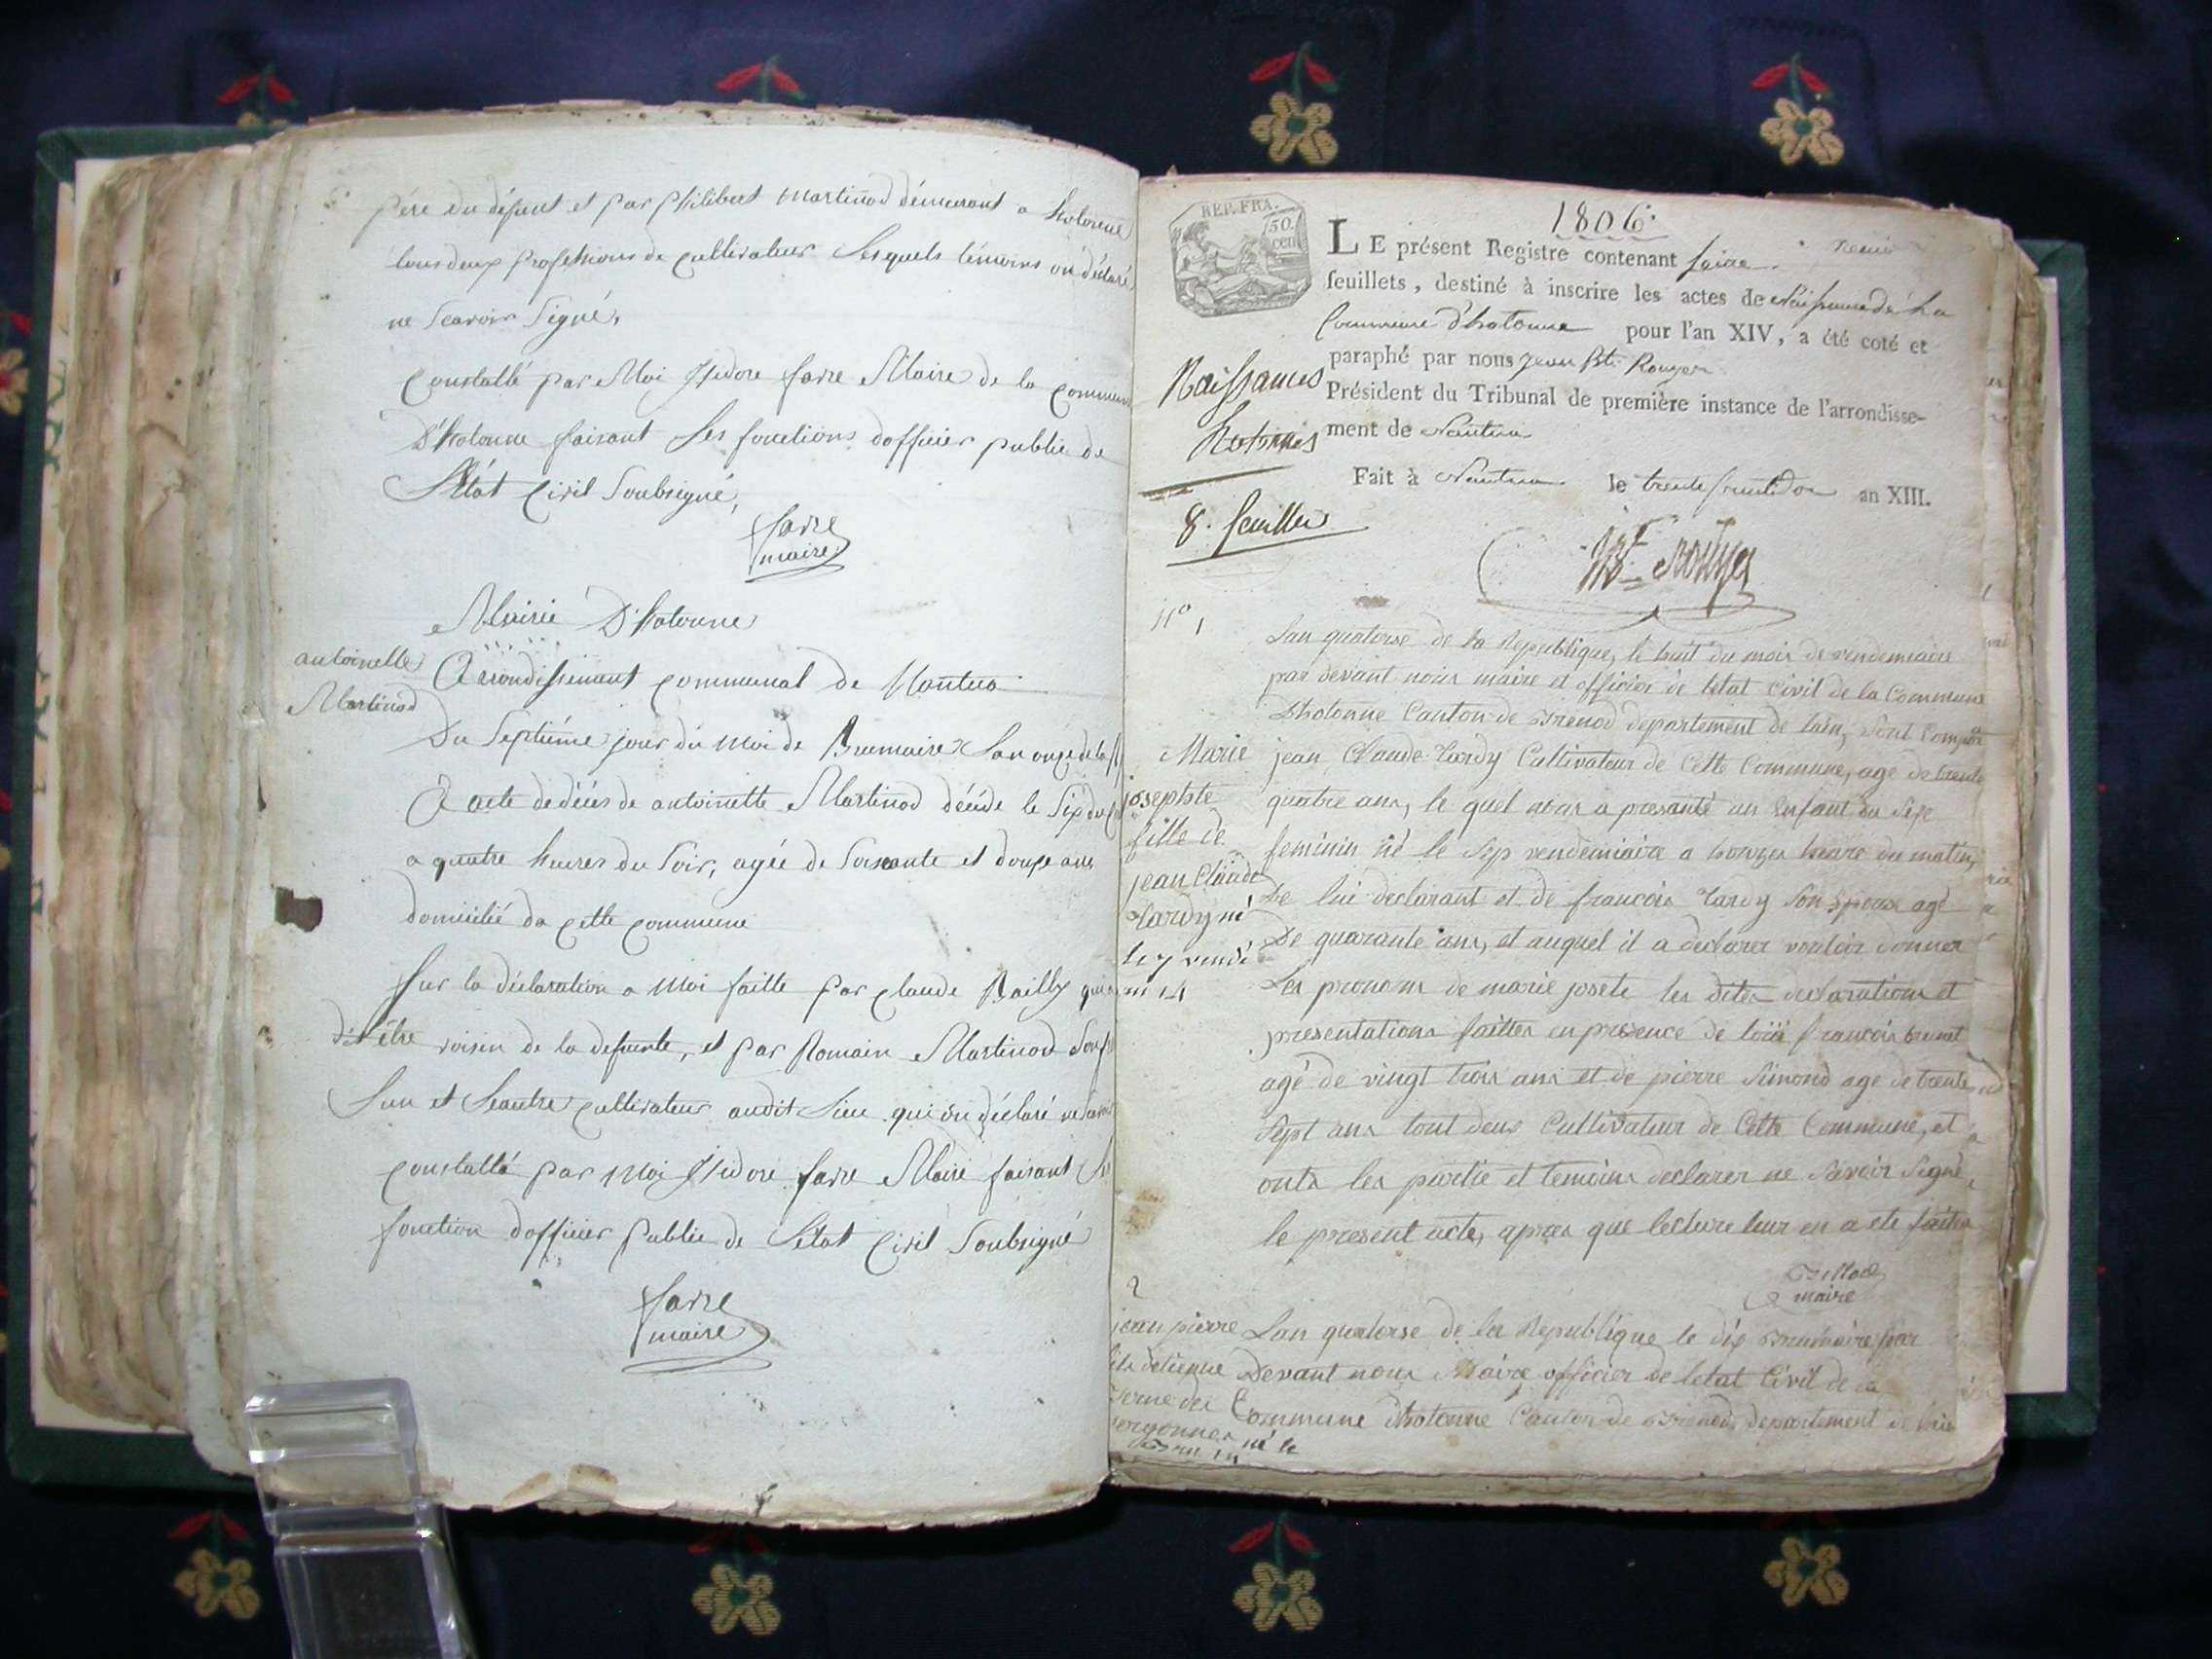 père du défunt et par philibert Martinod démeurant a hotonne
tous deux professions de cultivateur Lesquels témoins on déclaré
ne Scavoir Signé,
Constatté par Moi Isidore favre Maire de la commune
D'hotonne faisant Les fonctions dofficier public de
L'État Civil Soubsigné,
favre
maire
Mairie D'hotonne
antoinette
Martinod
Arrondissement communal de Nantua
Du Septiéme jour du Moi de Brumaire Lan onze de la
acte de décés de antoinette Martinod décéde le Six du
a quatre heures du Soir, agée de Soixante et douze ans
domicilié da cette commune
Sur la déclaration a Moi faitte par claude Bailly qui a
dit être voisin de la defunte, et par Romain Martinod
Lun et Leautre cultivateur audit Lieu qui on déclaré ne Savoir
constatté par Moi Isidore favre Maire faisant
fonction dofficier Public de L'état Civil Soubsigné
favre
maire
REP. FRA.
50.
cen
1806.
LE présent Registre contenant
feuillets, destiné à inscrire les actes de Naissance de la
Commune d'hotonne pour l'an XIV, a été coté et
paraphé par nous Jean Bte. Rouyer
Président du Tribunal de première instance de l'arrondisse-
ment de Nantua
Fait à Nantua le trente fructidor an XIII.
Naissances
hotonnes
8. feuillets
Rouyer
N° 1
Marie
josephte
fille de
jean Claude
Tardy né
le 7 vendé
an 14
Lan quatorse de la Republique, le huit du mois de vendemiaire
par devant nous maire et officier de letat Civil de la Commune
Dhotonne Canton de Brenod departement de lain, sont Comparu
jean Claude Tardy Cultivateur de Cette Commune, age de trente
quatre ans, le quel nous a presanté un enfant du Sexe
feminin né le Sep vendemiaire a honzes heure du matin,
De lui declarant et de françois Tardy Son Epouse agé
De quarante ans, et auquel il a declarer vouloir donner
Les pronoms de marie josete les dites declarations et
presentations faittes en presence de loüi françois brunet
agé de vingt trois ans et de pierre Simond age de trente
Sept ans tout deux Cultivateur de Cette Commune, et
onts les partie et temoins declarer ne Savoir Signé,
le present acte, apres que lecture leur en a ete faitte
maire
2
jean pierre
fils detienne
né le
Lan quatorse de la Republique le dix Brumaire par
Devant nous Maire officier de letat Civil de la
Commune dhotonne Canton de Brenod, departement de lain